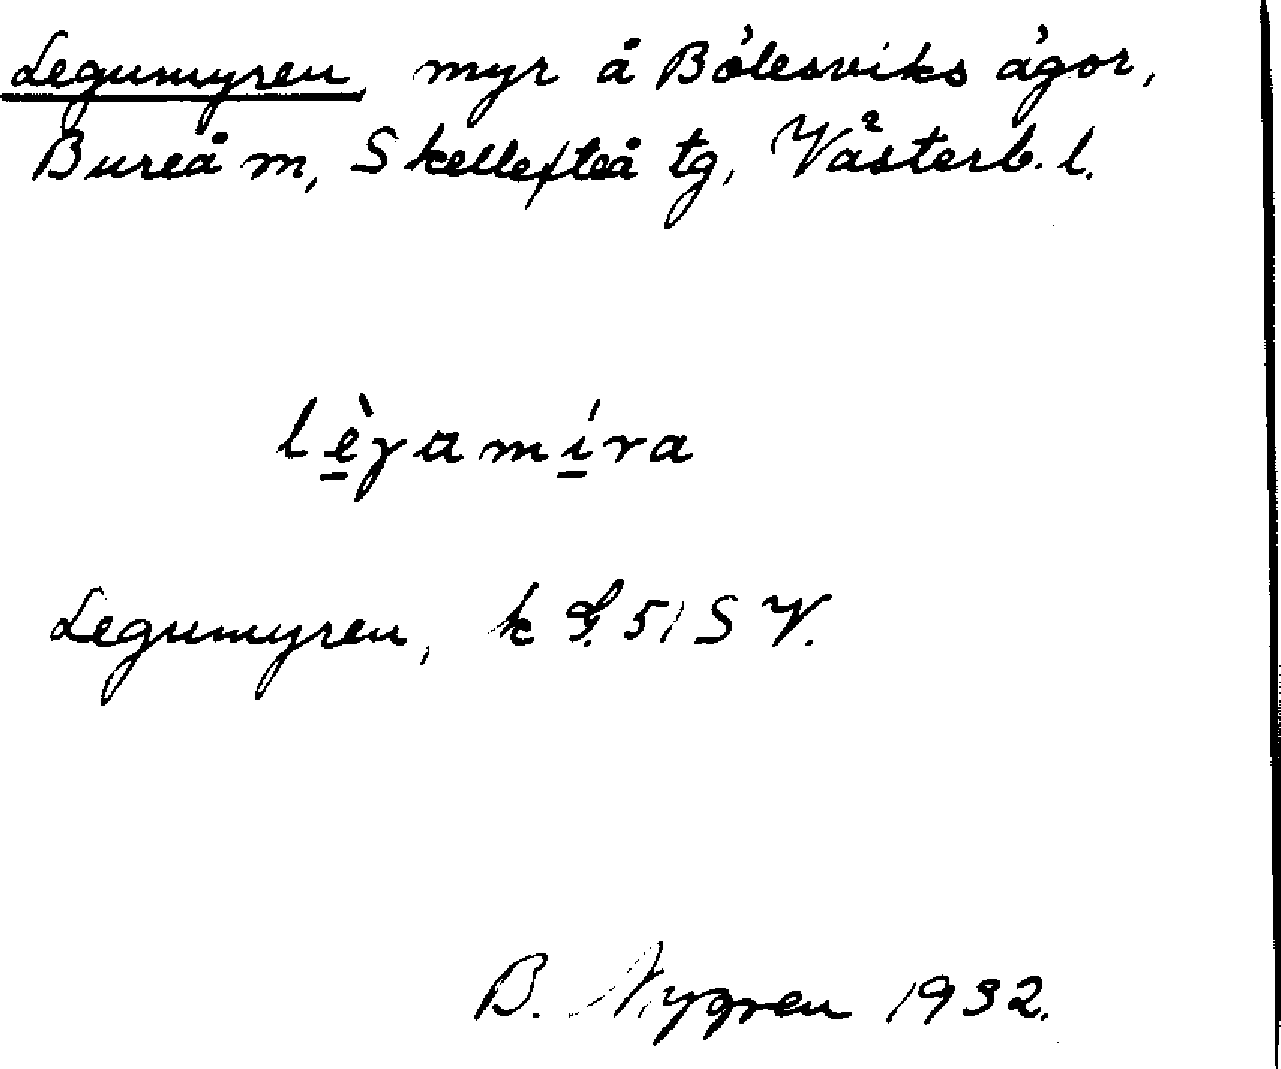 Legumyren, myr å Bölesviks ägor,
Bureå m, Skellefteå tg, Västerb. l.
lèγamíra
Legumyren, k 51 SV.
B. Nygren 1932.